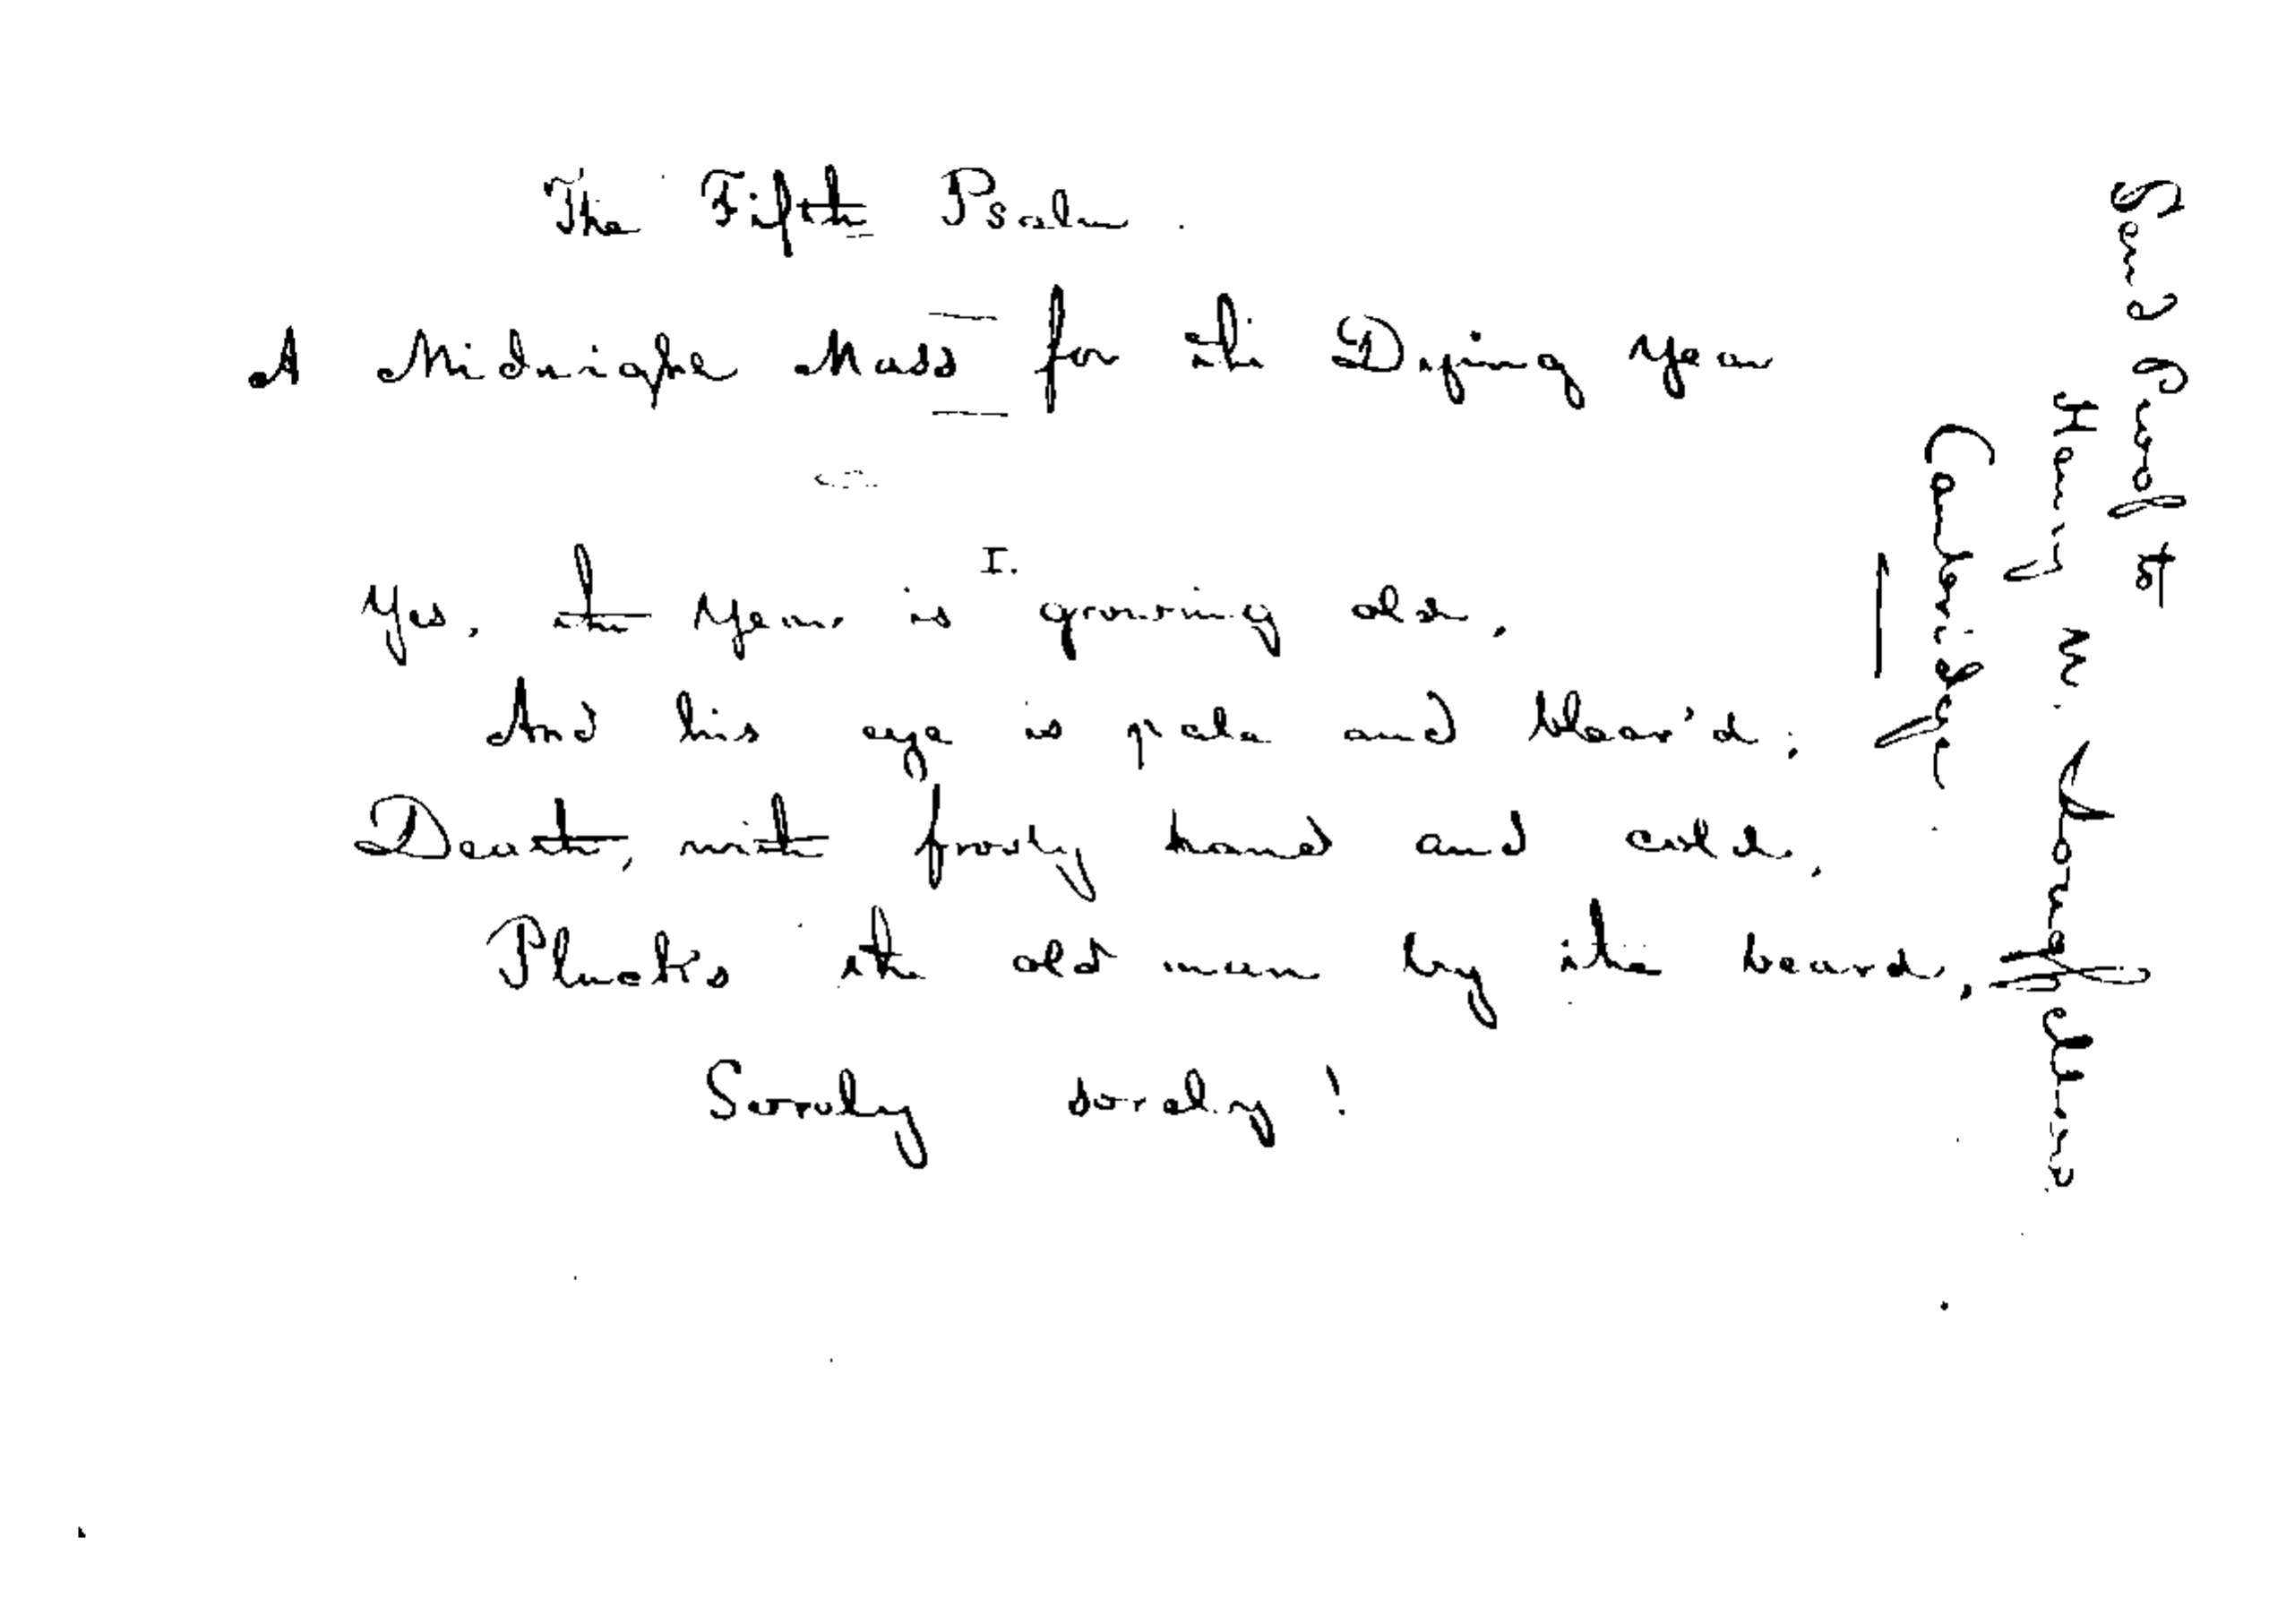 The Fifth Psalm.
A Midnight Mass for the Dying Year
I.
Yes, the Year is growing old,
And his eye is pale and blear'd;
Death, with frosty hand and cold,
Plucks the old man by the beard,
Sorely, sorely!
Send Proof to
Henry W. Longfellow
Cambridge